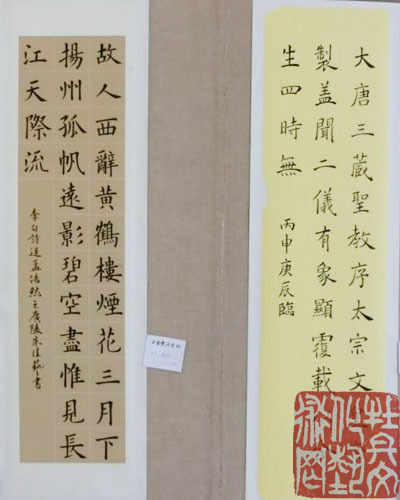 故人西辭黄鶴樓煙花三月下
揚州孤帆遠影碧空盡惟見長
江天際流
李白詩送孟浩然之廣陵朱佳藝書
大唐三藏聖教序太宗文
製盖聞二儀有象顯覆載
生四時無
丙申庚辰臨